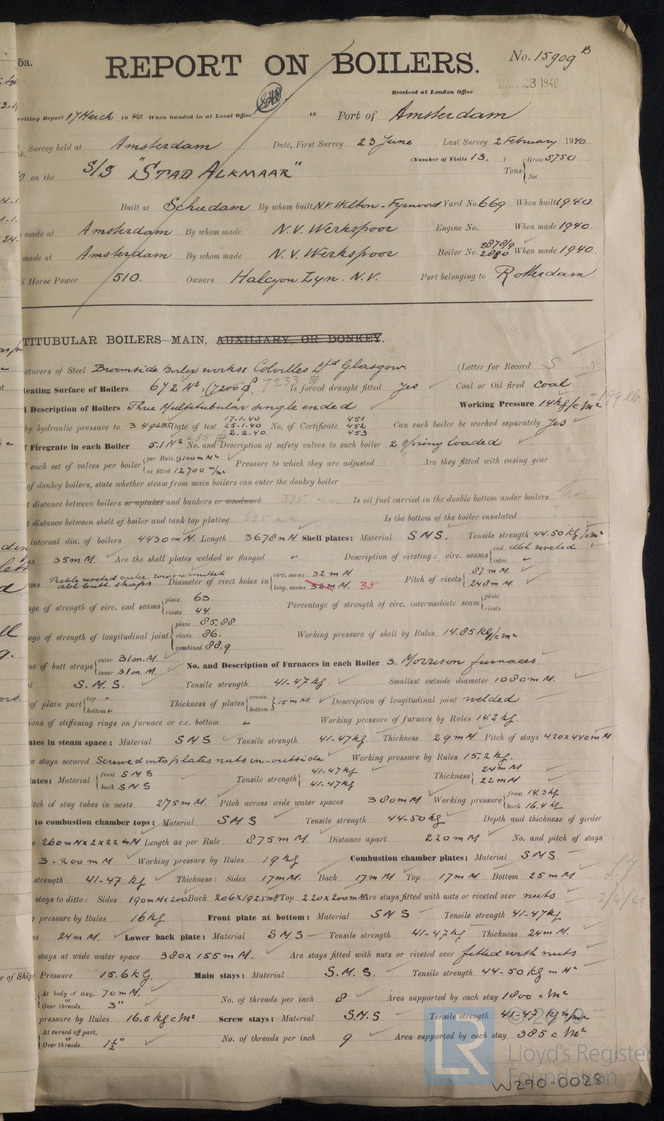 5a.
REPORT ON BOILERS.
No. 15909 B
Received at London Office
23 1940
writing Report 17 March 1940 When handed in at Local Office 10 Port of Amsterdam
Survey held at Amsterdam Date, First Survey 23 June Last Survey 2 February 1940
(Number of Visits 13.) Gross 5750
on the S/S "STAD ALKMAAR" Tons Net
Built at Schiedam By whom built N.V. Wilton-Fijenoord Yard No. 669 When built 1940
made at Amsterdam By whom made N.V. Werkspoor Engine No. When made 1940.
made at Amsterdam By whom made N.V. Werkspoor Boiler No. 2878/9 2880 When made 1940
Horse Power 510. Owners Halcyon Lyn. N.V. Port belonging to Rotterdam
TITUBULAR BOILERS—MAIN, AUXILIARY, OR DONKEY.
cturers of Steel Works Colvilles Ltd Glasgow (Letter for Record S)
eating Surface of Boilers 672 M² = (7200 7233 Is forced draught fitted Yes Coal or Oil fired coal
Description of Boilers Three Multitubular single ended Working Pressure 14 kg/cm²
by hydraulic pressure to Date of test 17-1-40 25-1-40 2-2-40 No. of Certificate 451 452 453 Can each boiler be worked separately Yes
Firegrate in each Boiler 5.1 M² No. and Description of safety valves to each boiler 2 spring loaded
each set of valves per boiler per Rule as fitted 12700 Pressure to which they are adjusted Are they fitted with easing gear
of donkey boilers, state whether steam from main boilers can enter the donkey boiler
t distance between boilers or uptakes and bunkers or woodwork 375 Is oil fuel carried in the double bottom under boilers No
t distance between shell of boiler and tank top plating Is the bottom of the boiler insulated
internal dia. of boilers 4430 m M. Length 3678 m M Shell plates: Material S M S. Tensile strength 44-50 kg/m²
35 m M. Are the shell plates welded or flanged Description of riveting: circ. seams end dbl inter.
ms dbl butt straps Diameter of rivet holes in circ. seams 32 m M long. seams 32 m M. 35 Pitch of rivets 87 m M. 248 m M.
age of strength of circ. end seams plate 63 rivets 44 Percentage of strength of circ. intermediate seam plate rivets
age of strength of longitudinal joint plate 85,88 rivets 86. combined 88.9 Working pressure of shell by Rules 14.85 kg/cm²
ss of butt straps outer 31 m M. inner 31 m M. No. and Description of Furnaces in each Boiler 3. Morrison furnaces
l S. M. S. Tensile strength 41-47 kg Smallest outside diameter 1080 m M.
of plain part top bottom Thickness of plates crown bottom 15 m M Description of longitudinal joint welded
ions of stiffening rings on furnace or c.c. bottom Working pressure of furnace by Rules 14.2 kg.
ates in steam space: Material S M S Tensile strength 41-47 kg. Thickness 29 m M Pitch of stays 420 x 440 m M
re stays secured Screwed into plates nuts in-outside Working pressure by Rules 15.2 kg.
lates: Material front S M S back S M S Tensile strength 41-47 kg 41-47 kg Thickness 24 m M 22 m M
itch of stay tubes in nests 275 m M. Pitch across wide water spaces 380 m M Working pressure front 14.3 kg back 16.4 kg
to combustion chamber tops: Material S M S Tensile strength 44-50 kg Depth and thickness of girder
e 260 m M x 2 x 22 m M Length as per Rule 875 m M. Distance apart 220 m M No. and pitch of stays
3 - 200 m M Working pressure by Rules 19 kg Combustion chamber plates: Material S M S
strength 41-47 kg Thickness: Sides 17 m M. Back 17 m M Top 17 m M Bottom 25 m M
stays to ditto: Sides 190 m M x 200 Back 206 x 192.5 Top 220 x 200 m M Are stays fitted with nuts or riveted over nuts
r pressure by Rules 16 kg Front plate at bottom: Material S M S Tensile strength 41-47 kg
ss 24 m M. Lower back plate: Material S M S Tensile strength 41-47 kg Thickness 24 m M.
stays at wide water space 380 x 155 m M. Are stays fitted with nuts or riveted over fitted with nuts
Pressure 15.6 kg. Main stays: Material S. M. S. Tensile strength 44-50 kg m M²
At body of stay, 70 m M. or Over threads 3" No. of threads per inch 8 Area supported by each stay 1800 c M²
pressure by Rules 16.6 kg c m² Screw stays: Material S.M.S Tensile strength 41-47 kg
At turned off part, or Over threads 1½" No. of threads per inch 9 Area supported by each stay 385 c M²
© 2019
LR
Lloyd's Register
Foundation
W290-0028